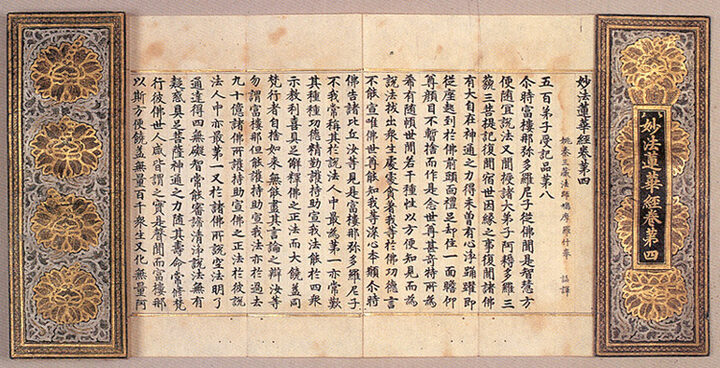 妙法蓮華經卷第四
妙法蓮華經卷第四
姚秦三藏法師鳩摩羅什奉 詔譯
五百弟子受記品第八
尒時富樓那弥多羅尼子從佛聞是智慧方
便随宜說法又聞授諸大弟子阿耨多羅三
藐三菩提記復聞宿世因緣之事復聞諸佛
有大自在神通之力得未曾有心淨踊躍即
從座起到於佛前頭面禮足却住一面瞻仰
尊顏目不暫捨而作是念世尊甚奇特所為
希有随順世間若干種性以方便知見而為
說法拔出衆生處處貪著我等於佛功德言
不能宣唯佛世尊能知我等深心本願尒時
佛告諸比丘汝等見是富樓那弥多羅尼子
不我常稱其於說法人中最為第一亦常歎
其種種功德精勤護持助宣我法能於四衆
示教利喜具足解釋佛之正法而大饒益同
梵行者自捨如來無能盡其言論之辯汝等
勿謂富樓那但能護持助宣我法亦於過去
九十億諸佛所護持助宣佛之正法於彼說
法人中亦最第一又於諸佛所說空法明了
通達得四無礙智常能審諦清淨說法無有
疑惑具足菩薩神通之力随其壽命常修梵
行彼佛世人咸皆謂之實是聲聞而富樓那
以斯方便饒益無量百千衆生又化無量阿